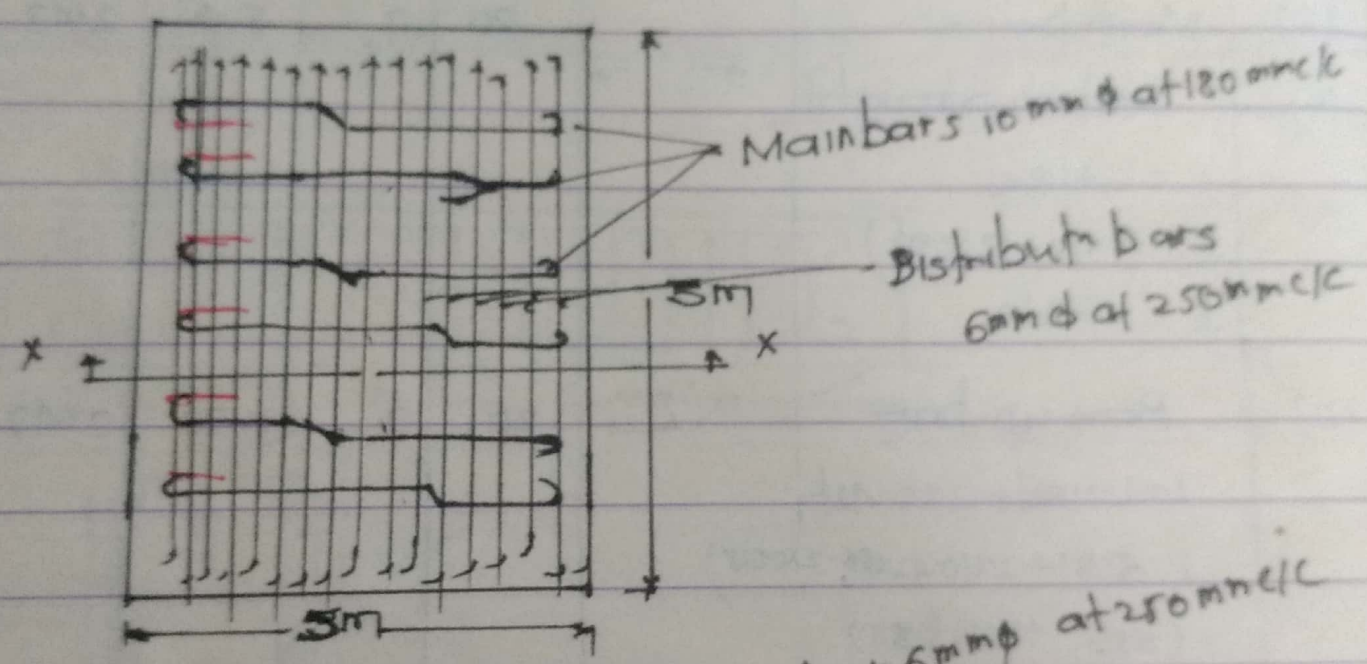 Mainbars 10 mm ϕ at 180 mmc/c
Distributn bars
6mm ϕ at 250mmc/c
5m
X
X
3m
6mmϕ at 250mmc/c